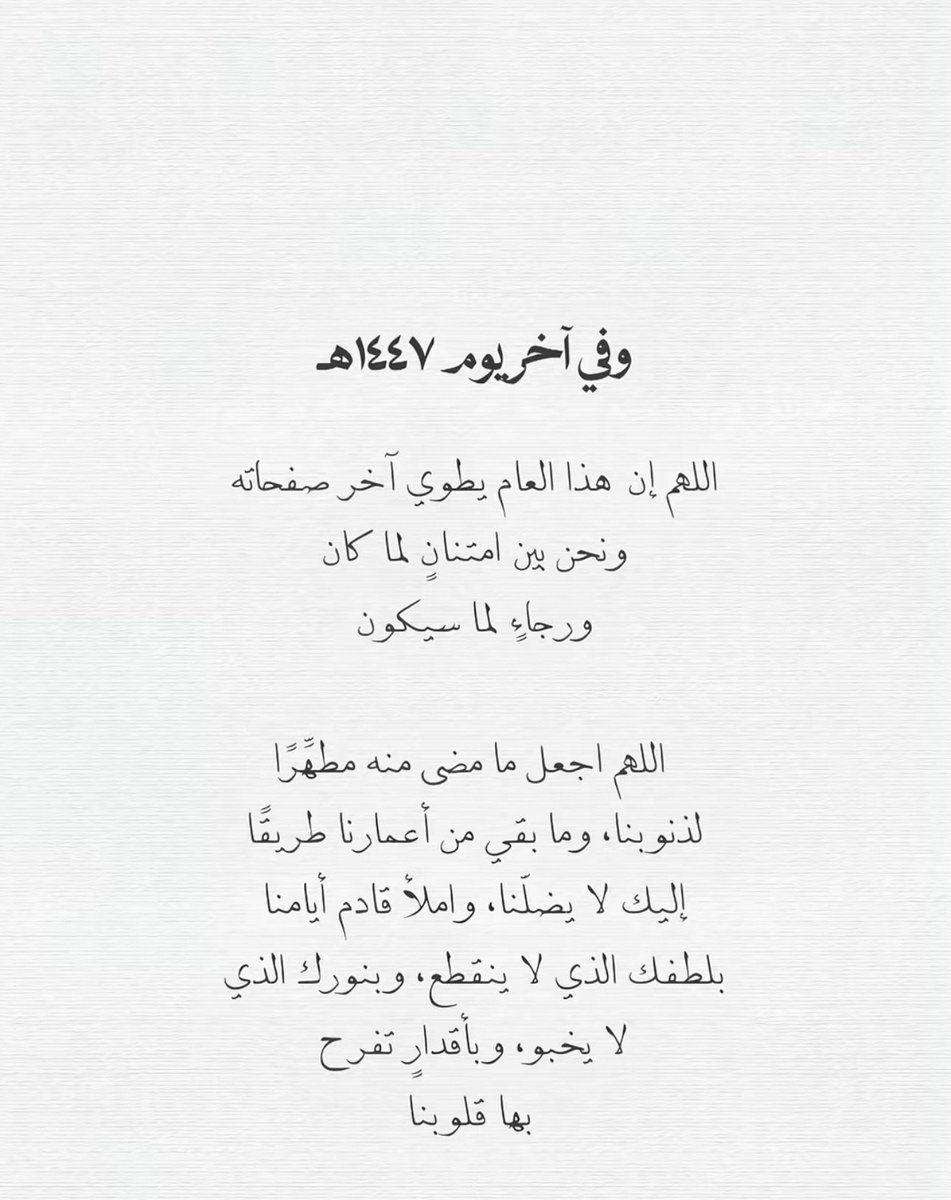 وفي آخر يوم ١٤٤٧هـ
اللهم إن هذا العام يطوي آخر صفحاته
ونحن بين امتنانٍ لما كان
ورجاءٍ لما سيكون
اللهم اجعل ما مضى منه مطهِّرًا
لذنوبنا، وما بقي من أعمارنا طريقًا
إليك لا يضلّنا، واملأ قادم أيامنا
بلطفك الذي لا ينقطع، وبنورك الذي
لا يخبو، وبأقدارٍ تفرح
بها قلوبنا